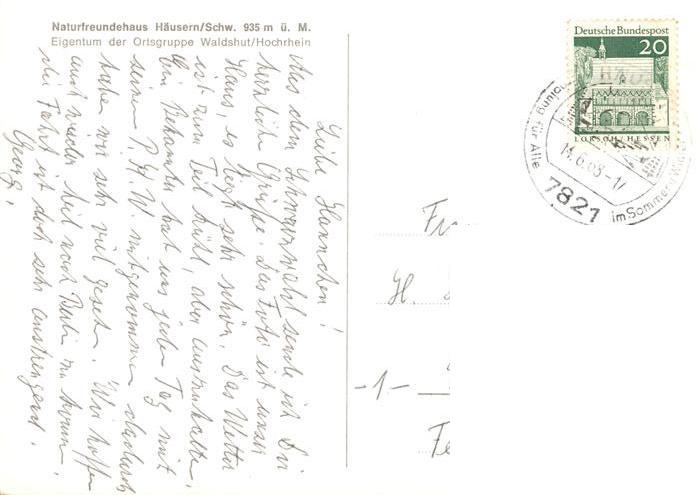 Naturfreundehaus Häusern/Schw. 935 m ü. M.
Eigentum der Ortsgruppe Waldshut/Hochrhein
Liebe Hannchen!
Aus dem Schwarzwald sende ich Dir
herzliche Grüße. Das Foto ist unser
Haus, es liegt sehr schön. Das Wetter
ist zum Teil kühl, aber auszuhalten,
Ein Bekannter hat uns jeden Tag mit
seinem P.K.W. mitgenommen dadurch
haben wir sehr viel gesehen. Wir hoffen
auch wieder bis nach Berlin zu kommen,
die Fahrt ist doch sehr anstrengend.
Georg.
Deutsche Bundespost
20
LORSCH/HESSEN
für Alle
14.6.68-17
7821
im Sommer
Fr
H.
-1-
Fe